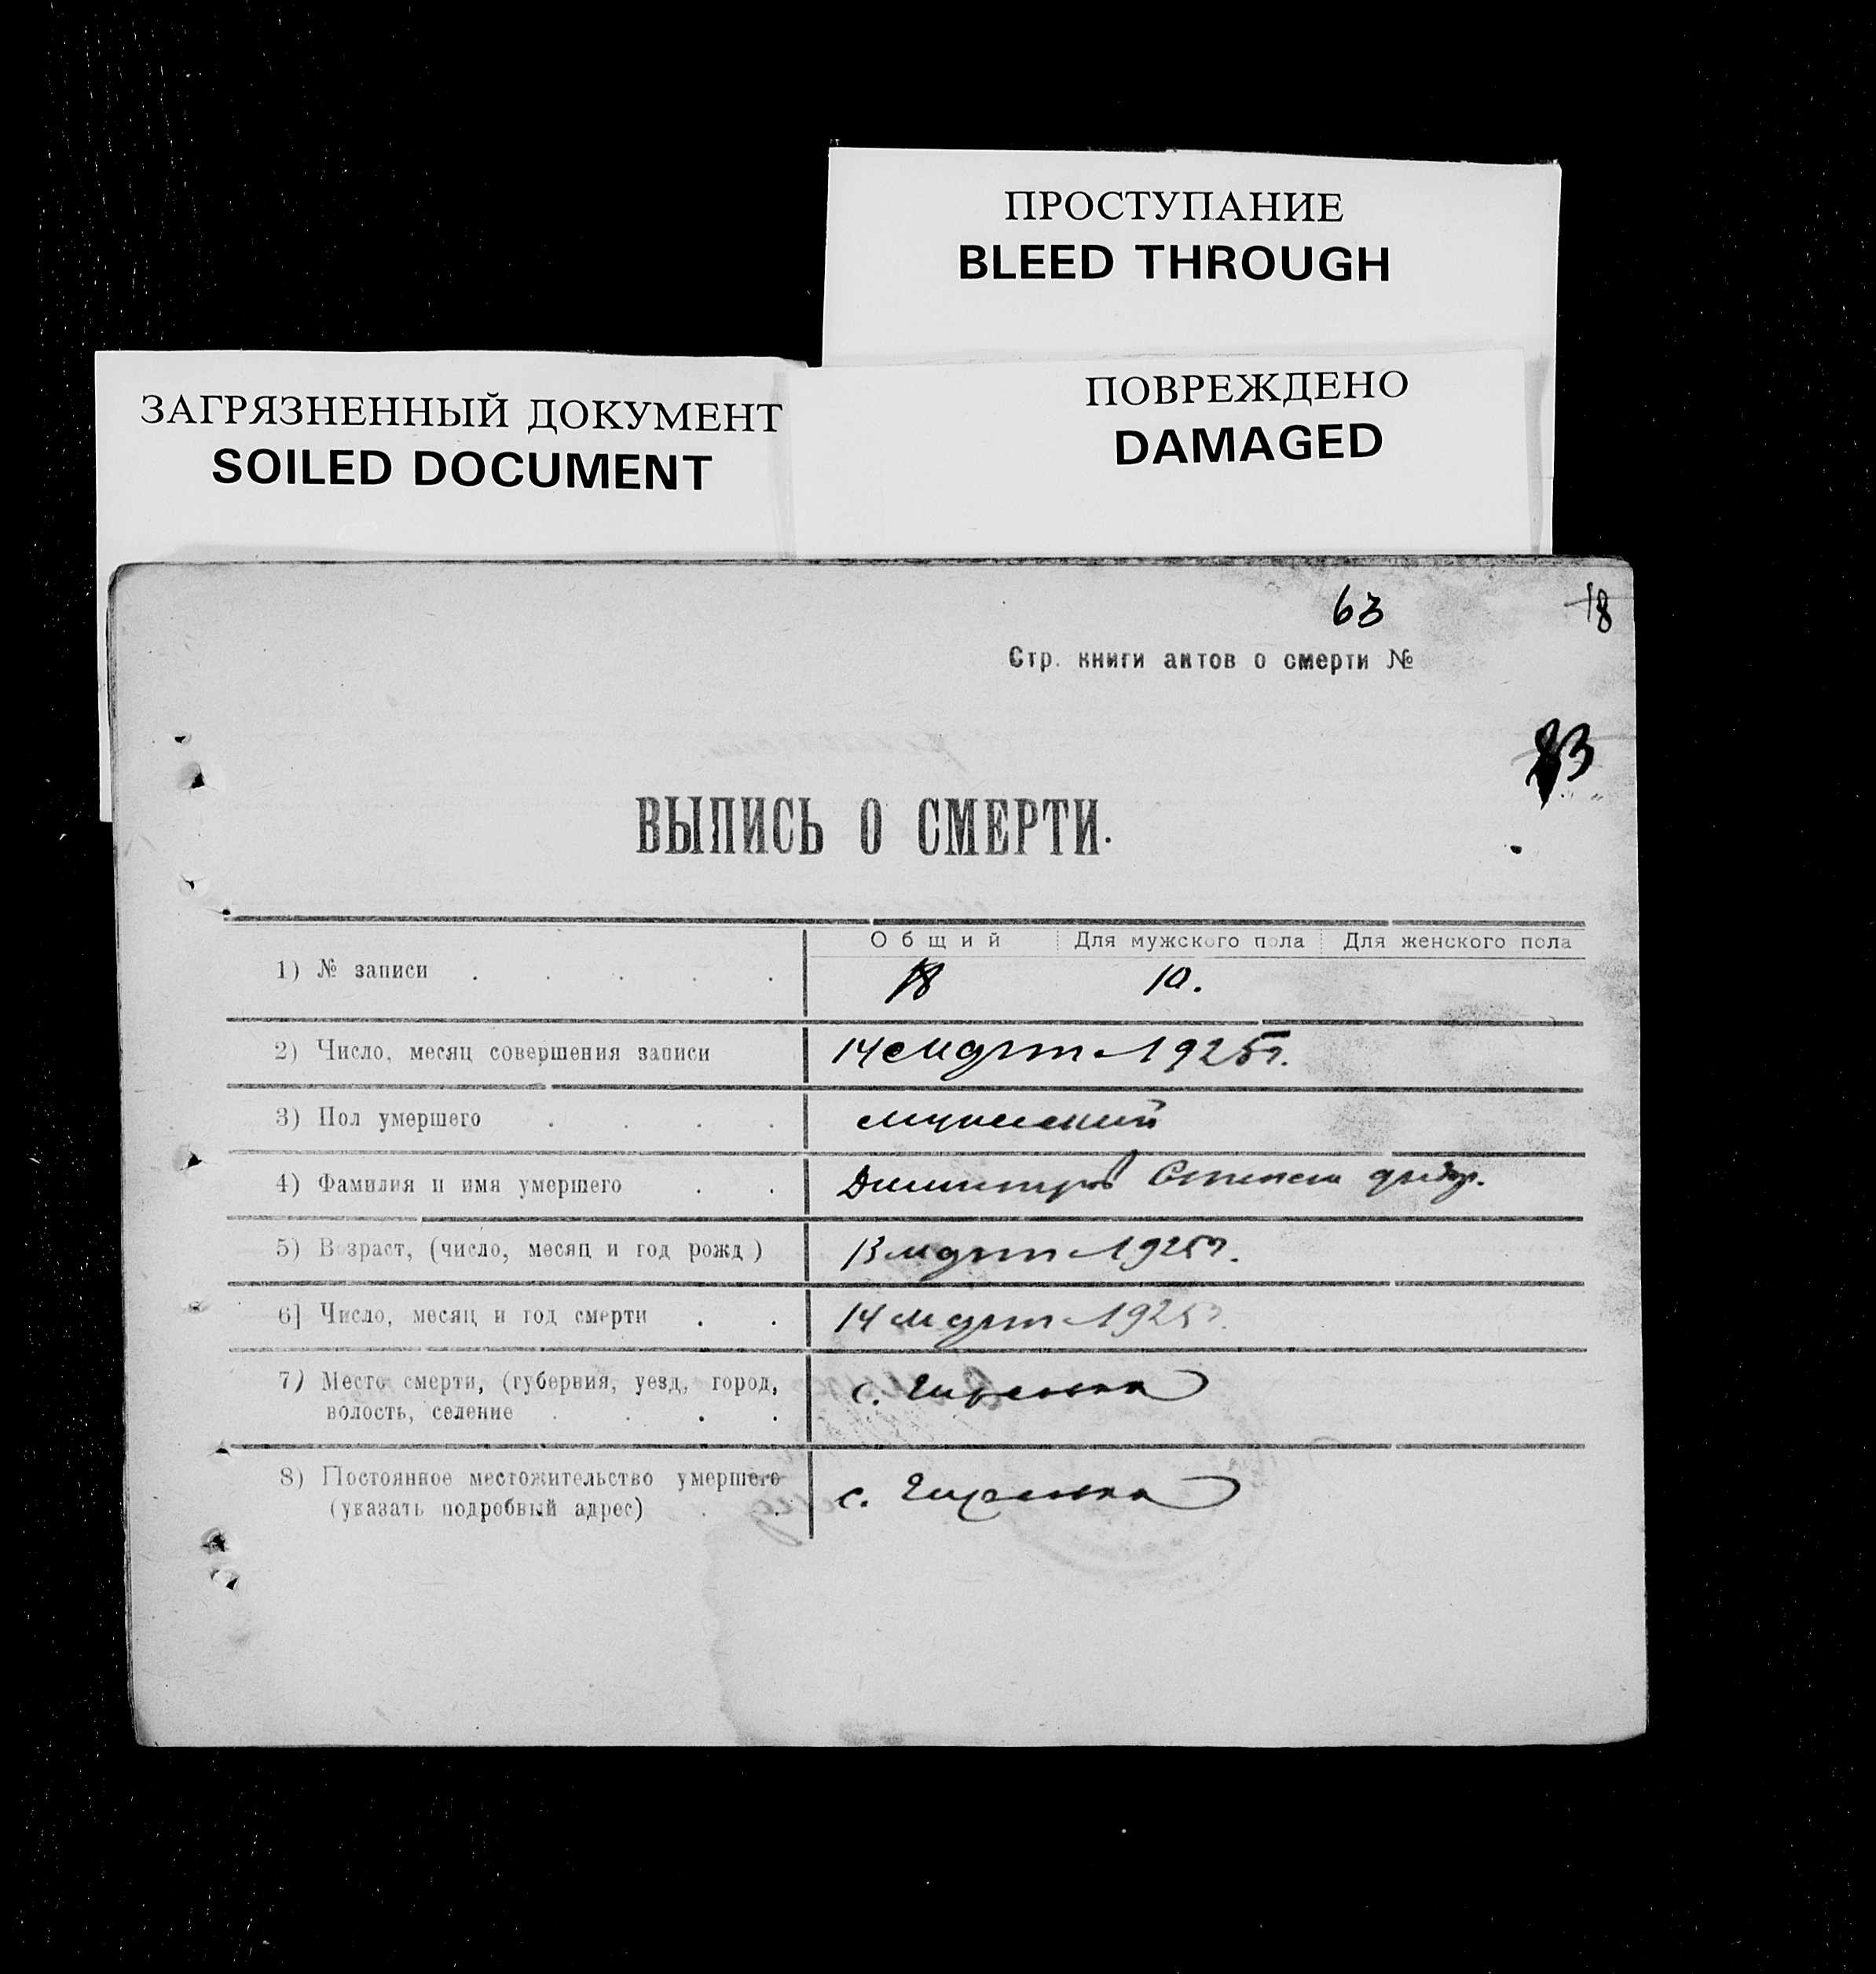 ПРОСТУПАНИЕ
BLEED THROUGH
ЗАГРЯЗНЕННЫЙ ДОКУМЕНТ
SOILED DOCUMENT
ПОВРЕЖДЕНО
DAMAGED
63
18
Стр. книги актов о смерти №
ВЫПИСЬ О СМЕРТИ.
Общий Для мужского пола Для женского пола
1) № записи . . . . . 18 10.
2) Число, месяц совершения записи 14 март 1925г.
3) Пол умершего . . . . мужский
4) Фамилия и имя умершего . . Димитров Степан
5) Возраст, (число, месяц и год рожд) 13 март 1925г.
6] Число, месяц и год смерти . . 14 март 1925г.
7) Место смерти, (губерния, уезд, город,
волость, селение . . . . с.
8) Постоянное местожительство умершего
(указать подробный адрес) . . с.